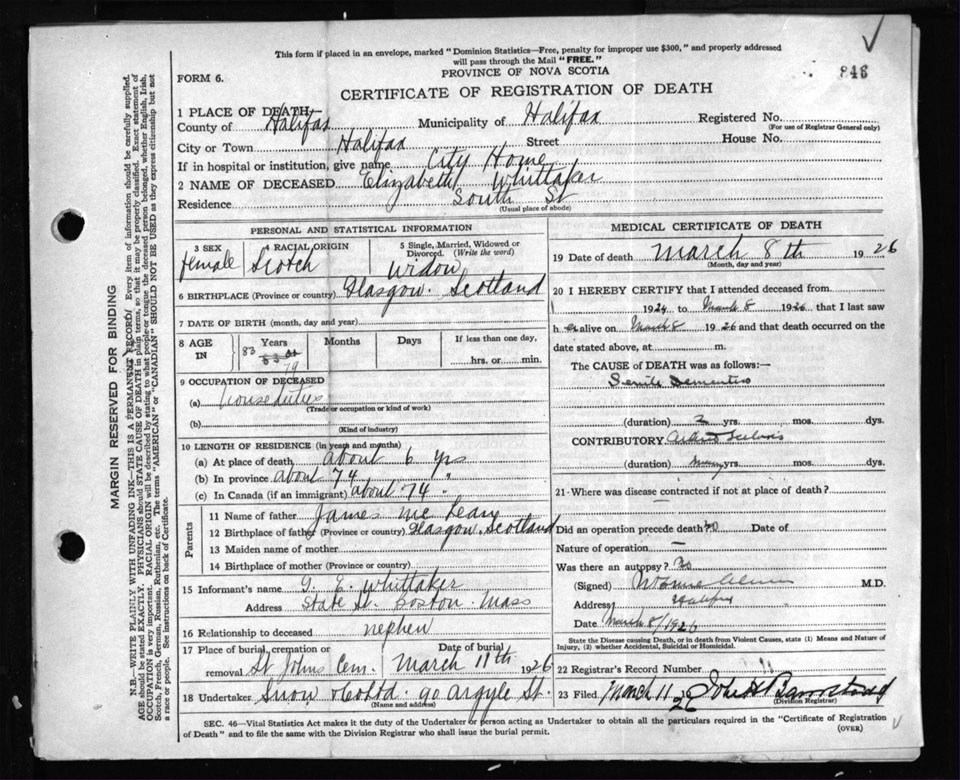 This form if placed in an envelope, marked "Dominion Statistics—Free, penalty for improper use $300," and properly addressed
will pass through the Mail "FREE."
FORM 6.
PROVINCE OF NOVA SCOTIA
846
CERTIFICATE OF REGISTRATION OF DEATH
1 PLACE OF DEATH—
County of Halifax Municipality of Halifax Registered No.
(For use of Registrar General only)
City or Town Halifax Street House No.
If in hospital or institution, give name City Home
2 NAME OF DECEASED Elizabeth Whittaker
Residence South St
(Usual place of abode)
PERSONAL AND STATISTICAL INFORMATION
3 SEX 4 RACIAL ORIGIN 5 Single, Married, Widowed or Divorced. (Write the word)
female Scotch Widow
6 BIRTHPLACE (Province or country) Glasgow. Scotland
7 DATE OF BIRTH (month, day and year)
8 AGE IN Years Months Days If less than one day,
83 79 hrs. or min.
9 OCCUPATION OF DECEASED
(a) House duties
(Trade or occupation or kind of work)
(b)
(Kind of industry)
10 LENGTH OF RESIDENCE (in years and months)
(a) At place of death about 6 yrs
(b) In province about 74 "
(c) In Canada (if an immigrant) about 74 "
Parents
11 Name of father James Mc Leary
12 Birthplace of father (Province or country) Glasgow, Scotland
13 Maiden name of mother
14 Birthplace of mother (Province or country)
15 Informant's name G. E. Whittaker
Address State St. Boston. Mass
16 Relationship to deceased nephew
17 Place of burial, cremation or removal St Johns Cem. Date of burial March 11th 1926
18 Undertaker Snow & Co Ltd. 90 Argyle St.
(Name and address)
MEDICAL CERTIFICATE OF DEATH
19 Date of death March 8th 1926
(Month, day and year)
20 I HEREBY CERTIFY that I attended deceased from
1924 to March 8 1926 that I last saw
h er alive on March 8 1926 and that death occurred on the
date stated above, at m.
The CAUSE of DEATH was as follows:
Senile Dementia
(duration) 2 yrs. mos. dys.
CONTRIBUTORY
(duration) many yrs. mos. dys.
21 Where was disease contracted if not at place of death?
Did an operation precede death? No Date of
Nature of operation —
Was there an autopsy? No
(Signed) M.D.
Address Halifax
Date March 8/1926
State the Disease causing Death, or in death from Violent Causes, state (1) Means and Nature of
Injury, (2) whether Accidental, Suicidal or Homicidal.
22 Registrar's Record Number
23 Filed March 11 26
(Division Registrar)
SEC. 46—Vital Statistics Act makes it the duty of the Undertaker or person acting as Undertaker to obtain all the particulars required in the "Certificate of Registration
of Death" and to file the same with the Division Registrar who shall issue the burial permit.
(OVER)
MARGIN RESERVED FOR BINDING
N.B.—WRITE PLAINLY WITH UNFADING INK—THIS IS A PERMANENT RECORD. Every item of information should be carefully supplied.
AGE should be stated EXACTLY. PHYSICIANS should STATE CAUSE OF DEATH in plain terms, so that it may be properly classified. Exact statement of
OCCUPATION is very important. RACIAL ORIGIN will be described by stating to what people or tongue the deceased person belonged, whether English, Irish,
Scotch, French, German, Russian, Ruthenian, etc. The terms "AMERICAN" or "CANADIAN" SHOULD NOT BE USED as they express citizenship but not
a race or people. See instructions on back of Certificate.